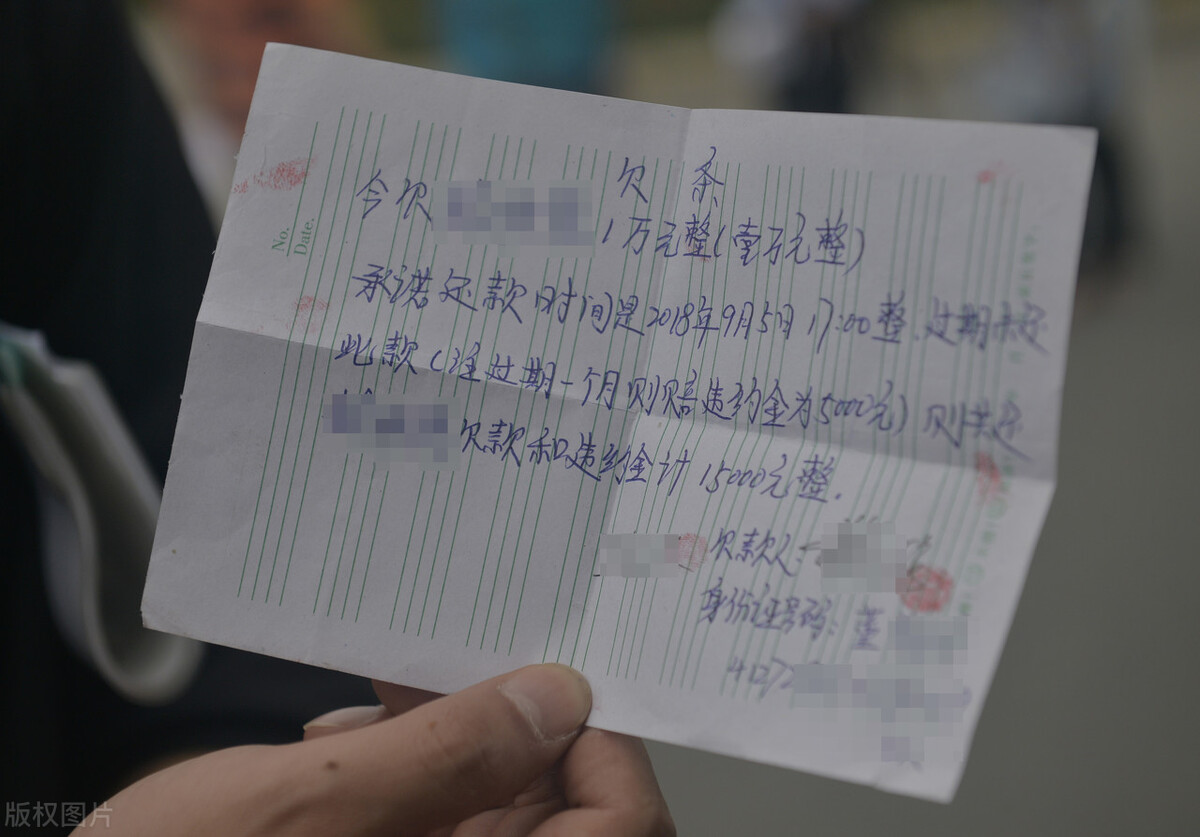 欠条
今欠 1万元整(壹万元整)
承诺还款时间是2018年9月5日17:00整.过期未还
此款(注过期一个月则赔违约金为5000元)则共还
欠款和违约金计15000元整.
欠款人:
身份证号码:
41272
No.
Date.
版权图片